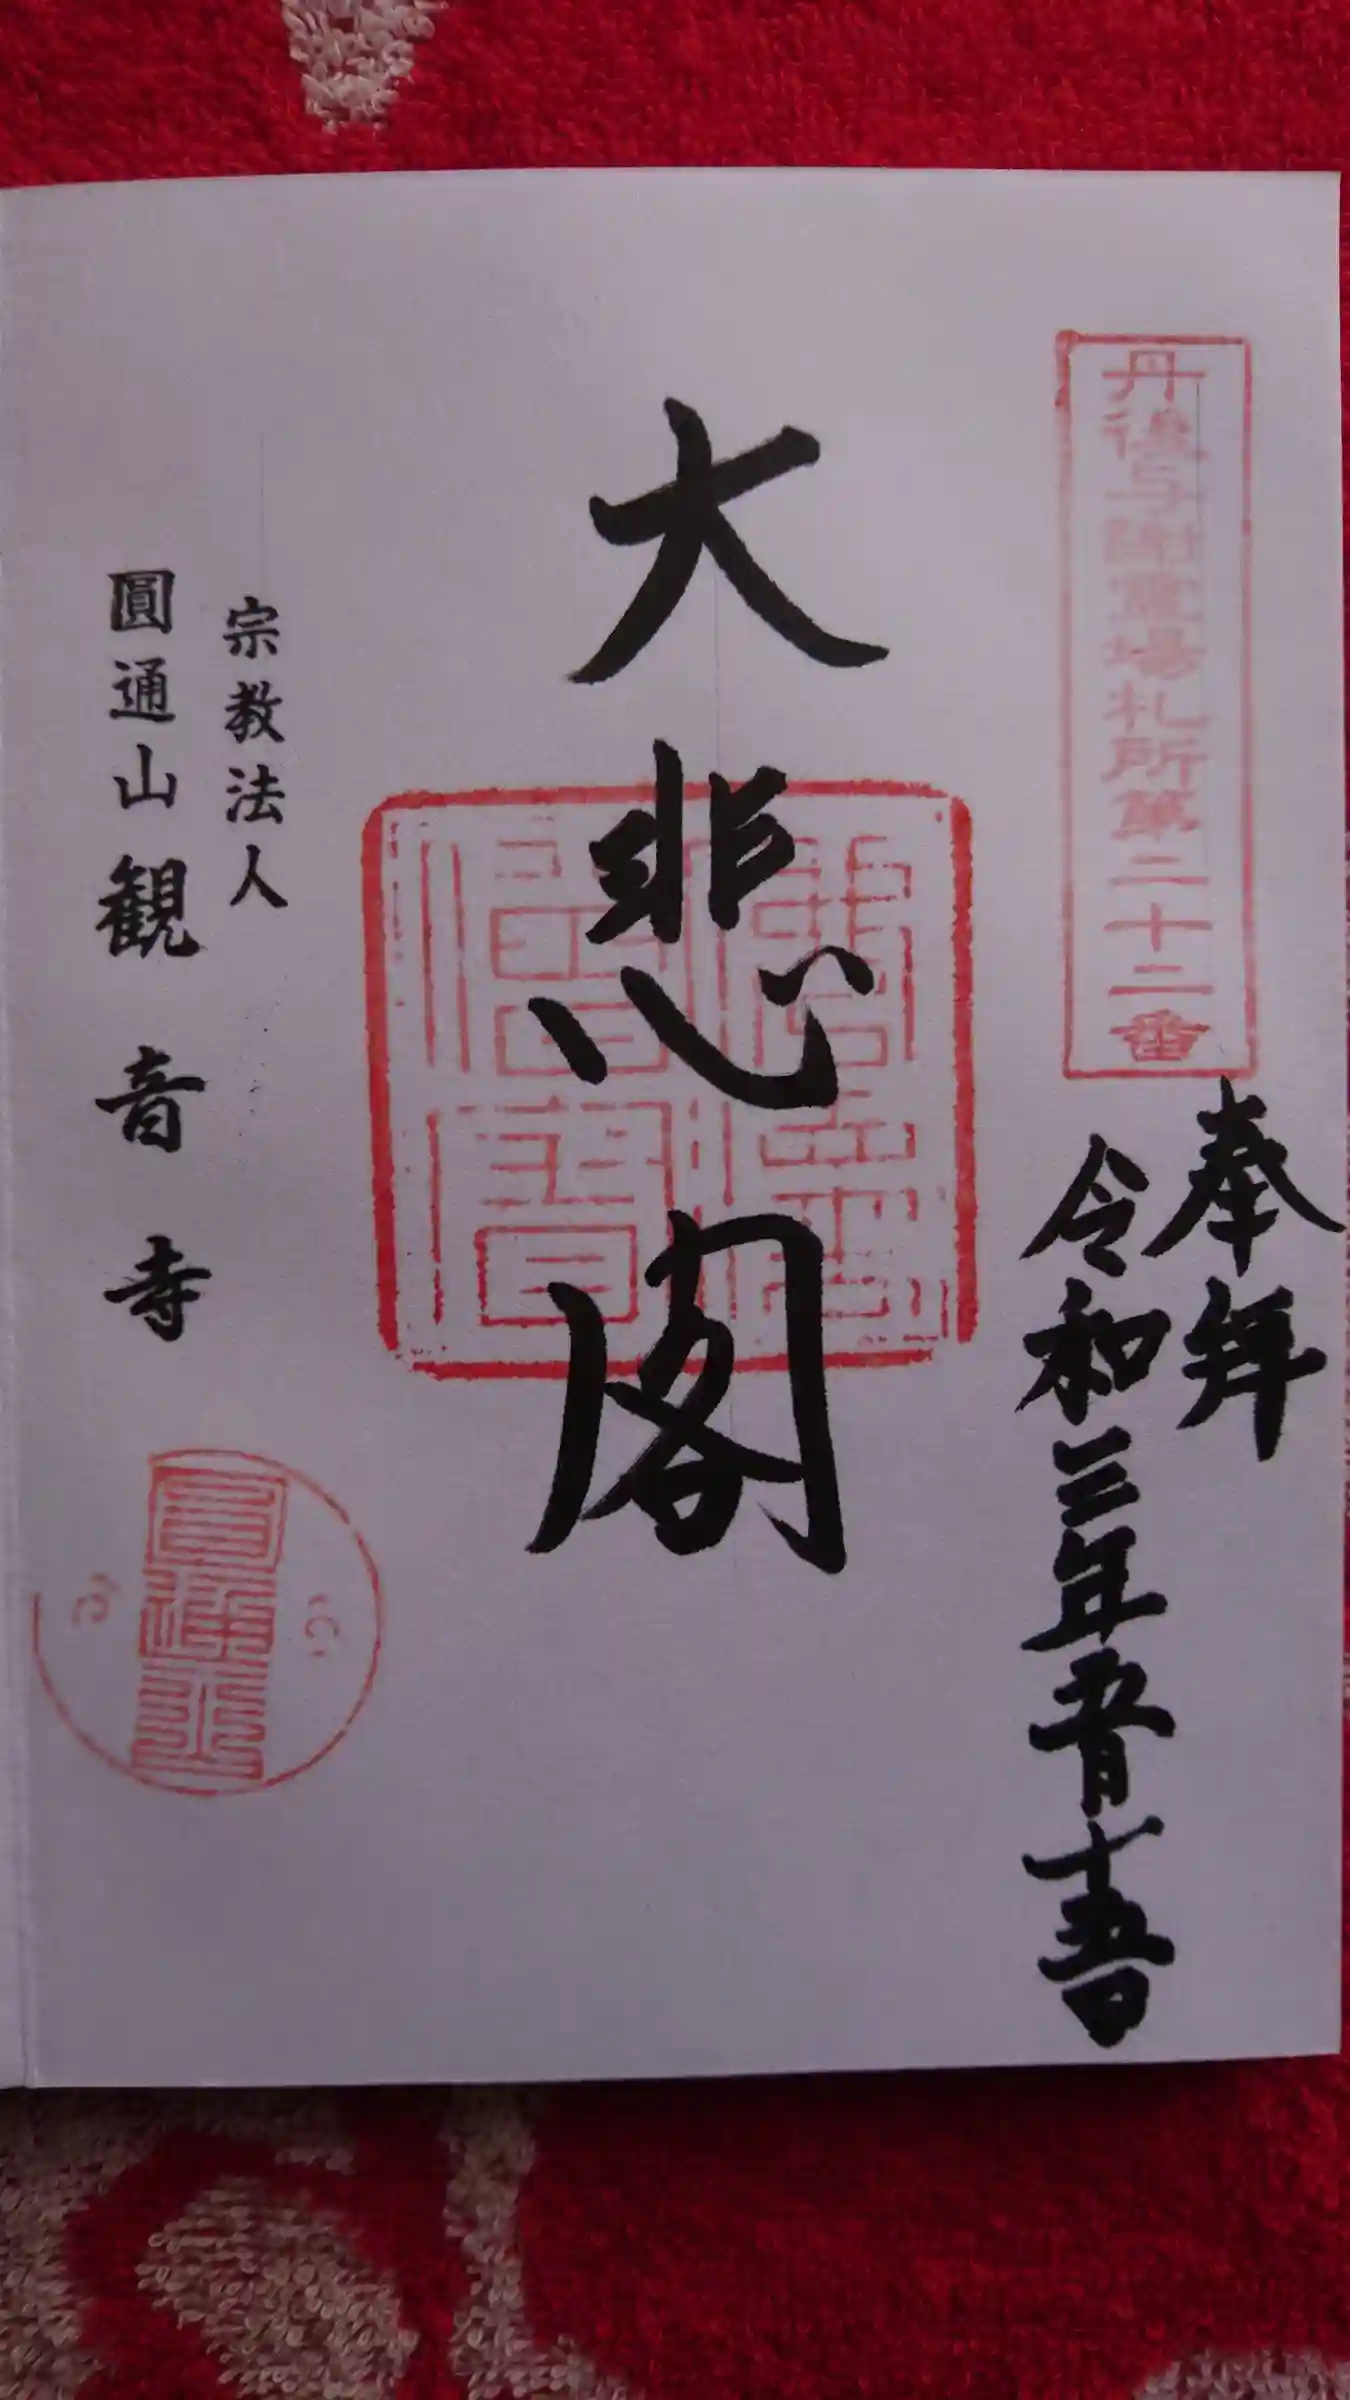 丹後与謝霊場札所第二十二番
奉拝
令和三年五月十五日
大悲閣
宗教法人
圓通山観音寺